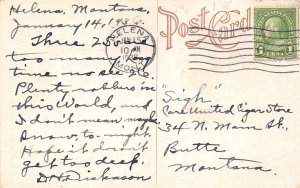 Helena, Montana,
January 14, 19
Post Card
HELENA
JAN 15
10 AM
MONT.
Three
too many
time no see
Plenty robbers in
this World, and
I don't mean maybe.
Snow to-night
Hope it don't
get too deep.
Dickason
1 CENT 1
"Sigh"
Care United Cigar Store
34 N. Main St.,
Butte
Montana.